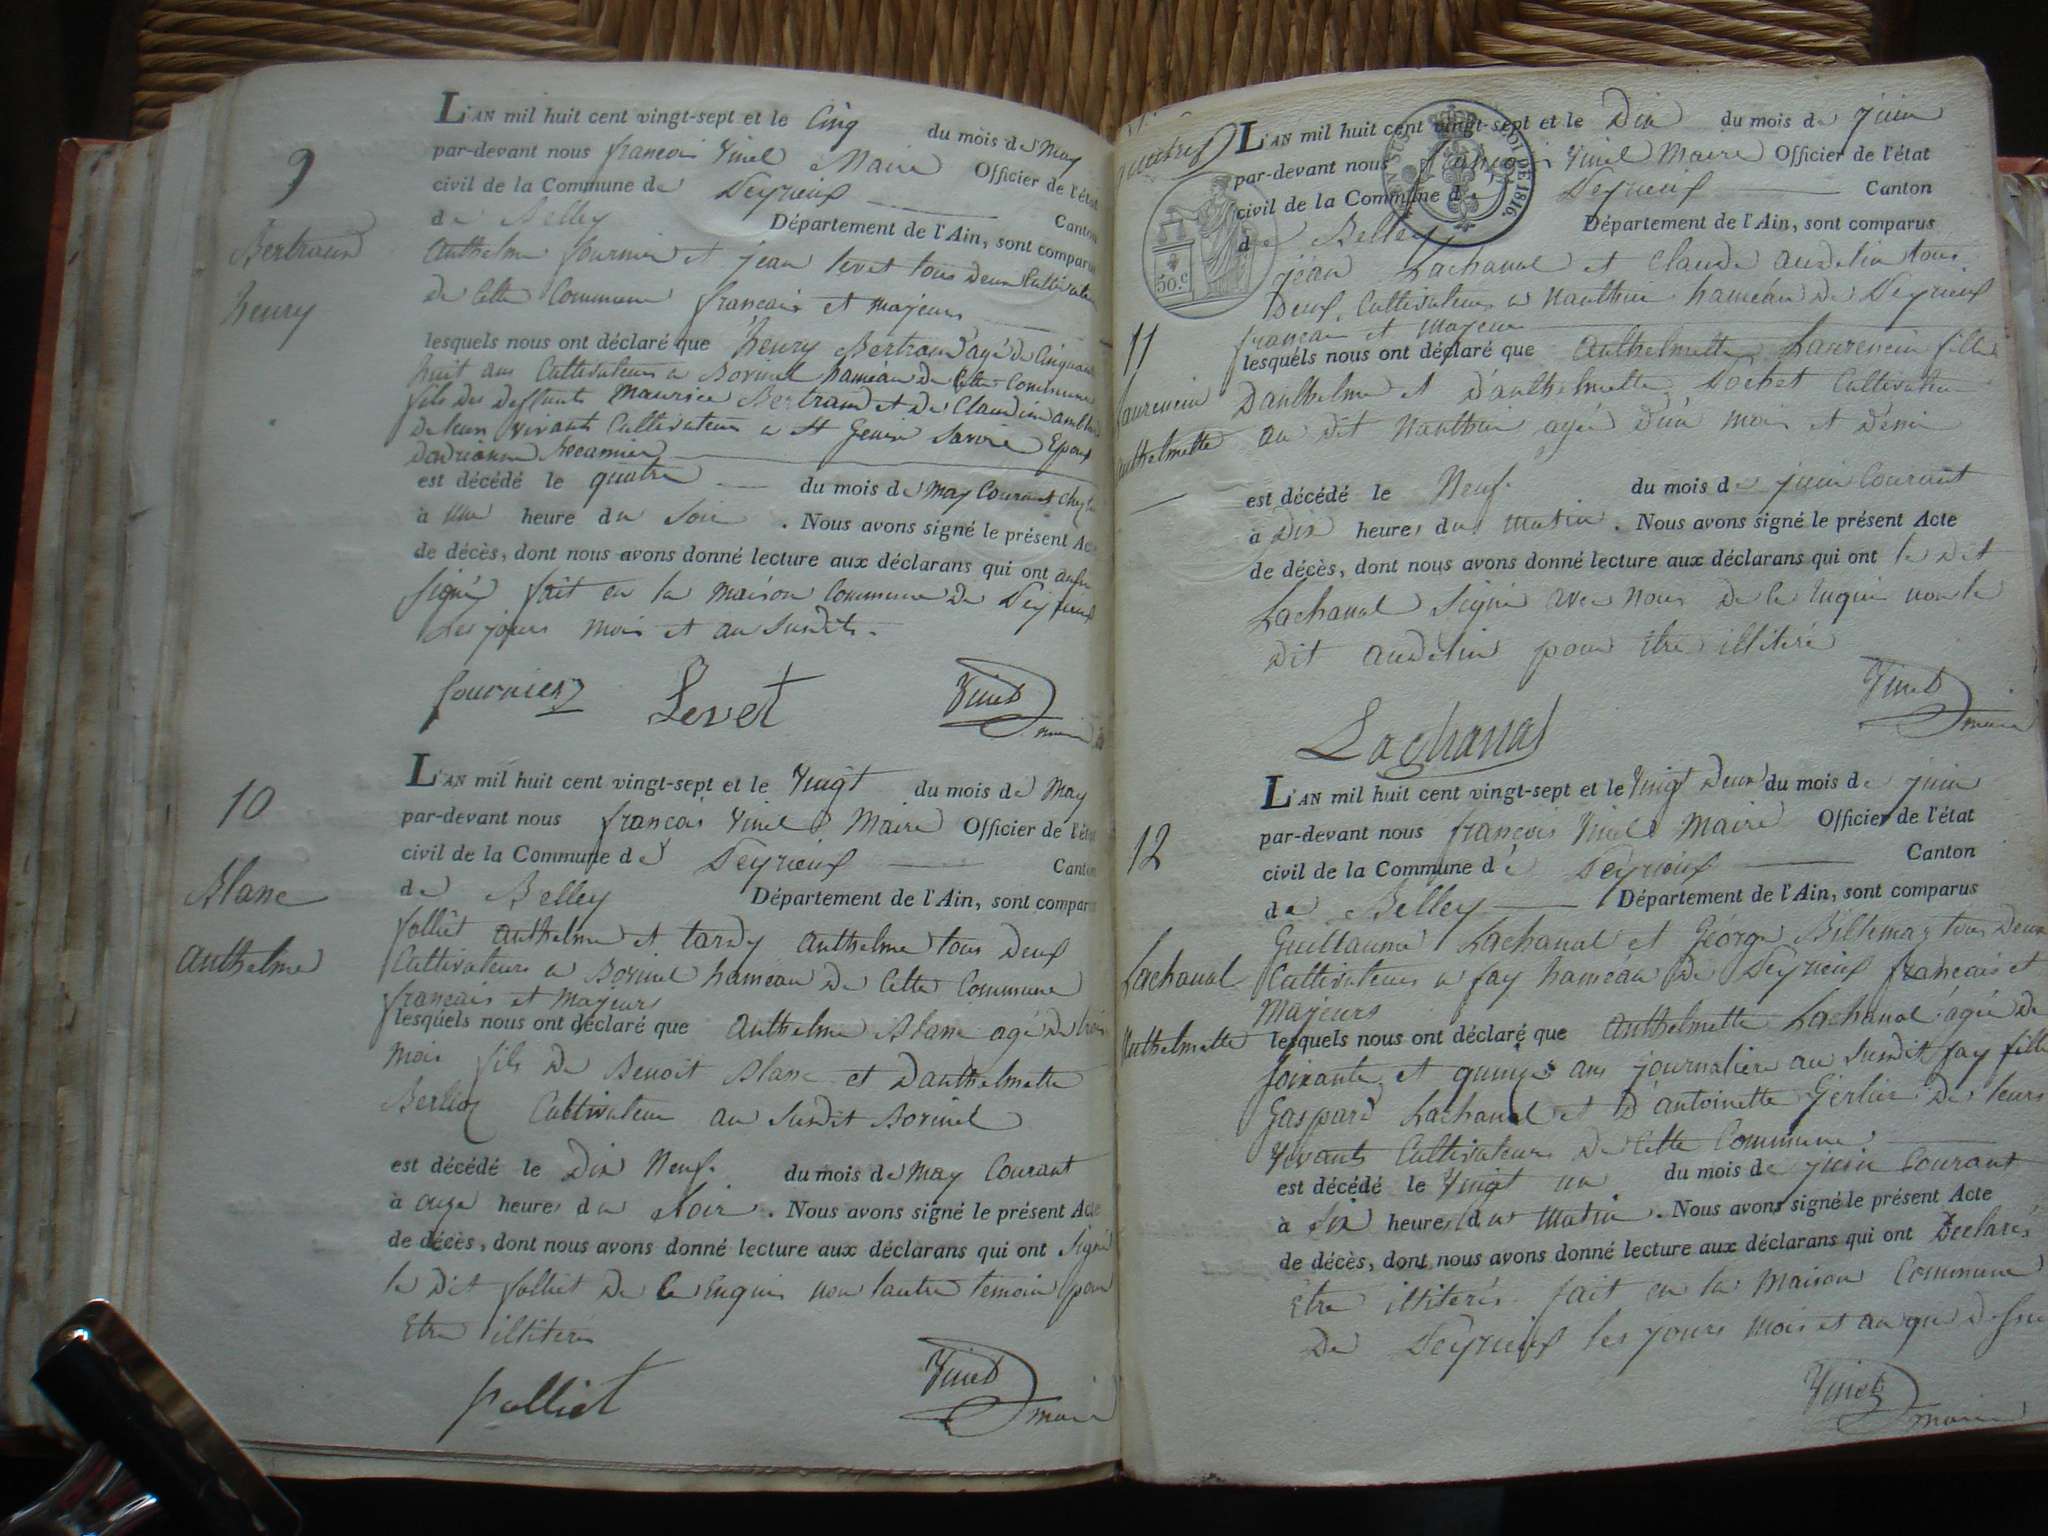 9
Bertrand
henry
L'AN mil huit cent vingt-sept et le Cinq du mois de May
par-devant nous francois Vinet Maire Officier de l'état
civil de la Commune de Peyrieux Canton
de Belley Département de l'Ain, sont comparus
Anthelme fournier et jean levet tous deux Cultivateurs
de Cette Commune francais et majeurs
lesquels nous ont déclaré que henry Bertrand agé de Cinquante
huit ans Cultivateur a hameau de Cette Commune
fils des deffunts Maurice Bertrand et de Claudine
de leur vivants Cultivateurs a St Genix Savoie Epoux
est décédé le quatre du mois de May Courant
à une heure du Soir. Nous avons signé le présent Acte
de décès, dont nous avons donné lecture aux déclarans qui ont
Signé fait en la maison Commune de Peyrieux
Les jours mois et an Susdits.
fournier Levet Vinet maire
10
Blanc
Anthelme
L'AN mil huit cent vingt-sept et le Vingt du mois de May
par-devant nous francois Vinet Maire Officier de l'état
civil de la Commune de Peyrieux Canton
de Belley Département de l'Ain, sont comparus
folliet Anthelme et tardy Anthelme tous deux
Cultivateurs a hameau de Cette Commune
francais et Majeurs
lesquels nous ont déclaré que Anthelme Blanc agé de trois
mois fils de Benoit Blanc et D'anthelmette
Cultivateur au Susdit
est décédé le Dix Neuf du mois de May Courant
à onze heures du Soir. Nous avons signé le présent Acte
de décès, dont nous avons donné lecture aux déclarans qui ont Signé
le dit folliet de ce Enquis non lautre temoin pour
Etre illiteré
folliet Vinet maire
L'AN mil huit cent vingt-sept et le Dix du mois de juin
par-devant nous francois Vinet Maire Officier de l'état
civil de la Commune de Peyrieux Canton
de Belley Département de l'Ain, sont comparus
LOI DE 1816.
50.c
11
Laurencin
Anthelmette
jean Lachanal et Claude tous
Deux Cultivateurs a Nanthui hameau de Peyrieux
francais et Majeur
lesquels nous ont déclaré que Anthelmette Laurencin fille
D'anthelme et D'anthelmette Cultivateur
au dit Nanthui agée d'un mois et démi
est décédé le Neuf du mois de juin Courant
à Dix heures du matin. Nous avons signé le présent Acte
de décès, dont nous avons donné lecture aux déclarans qui ont le dit
Lachanal Signé avec Nous de ce Enquis non le
dit pour être illiteré
Lachanal Vinet maire
12
Lachanal
Anthelmette
L'AN mil huit cent vingt-sept et le Vingt Deux du mois de juin
par-devant nous françois Vinet Maire Officier de l'état
civil de la Commune de Peyrieux Canton
de Belley Département de l'Ain, sont comparus
Guillaume Lachanal et Géorge tous Deux
Cultivateurs a fay haméau de Peyrieux francais et
Majeurs
lesquels nous ont déclaré que Anthelmette Lachanal agée de
Soixante et quinze ans journaliere au Susdit fay fille
Gaspard Lachanal et D'antoinette Gerlier de leurs
Vivants Cultivateurs de Cette Commune
est décédé le Vingt un du mois de juin Courant
à Six heures du Matin. Nous avons signé le présent Acte
de décès, dont nous avons donné lecture aux déclarans qui ont Declarés
Etre illiterés fait en la Maison Commune
de Peyrieux les jours mois et an que dessus
Vinet maire